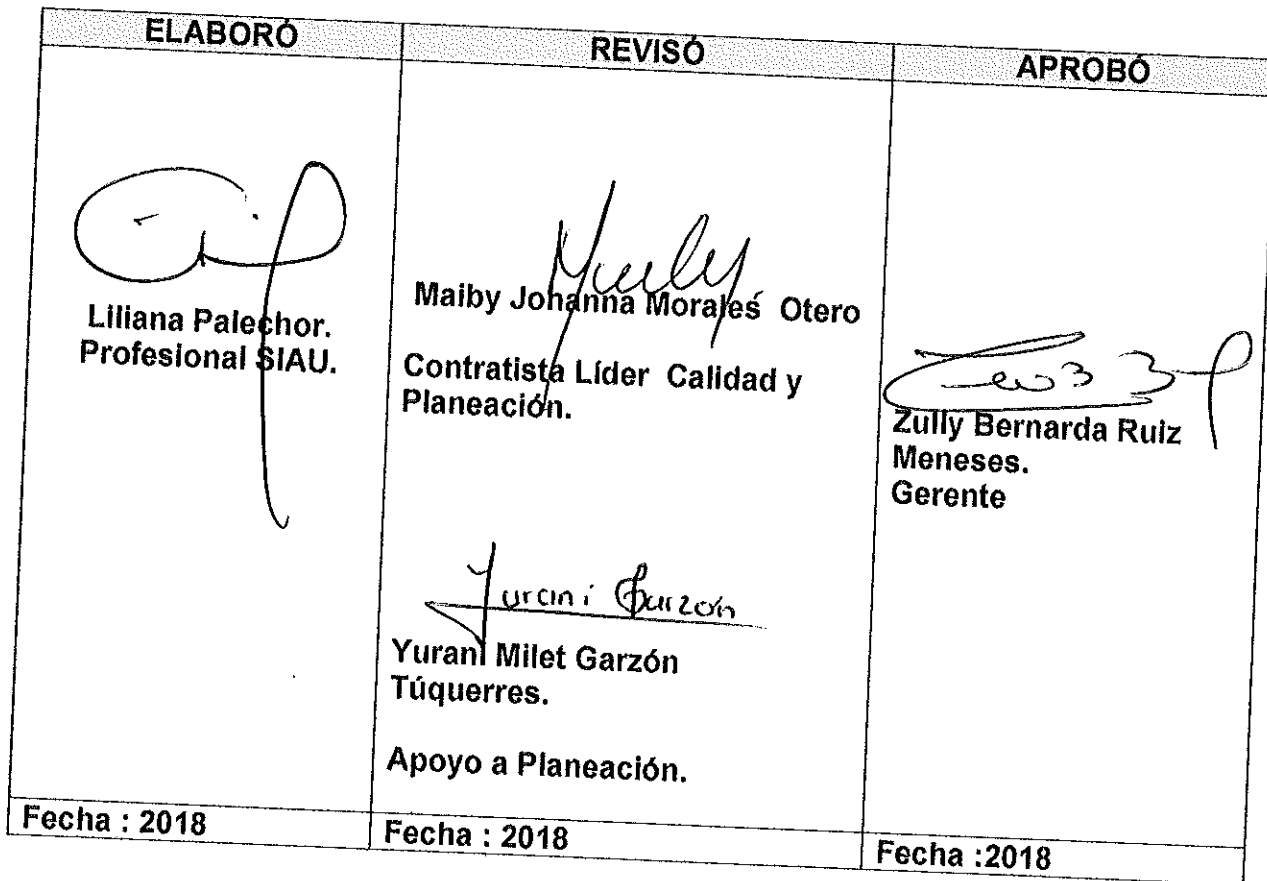 ELABORÓ
REVISÓ
APROBÓ
Liliana Palechor.
Profesional SIAU.
Maiby Johanna Morales Otero
Contratista Líder Calidad y
Planeación.
Yurani Garzón
Yurani Milet Garzón
Túquerres.
Apoyo a Planeación.
Zully Bernarda Ruiz
Meneses.
Gerente
Fecha : 2018
Fecha : 2018
Fecha :2018